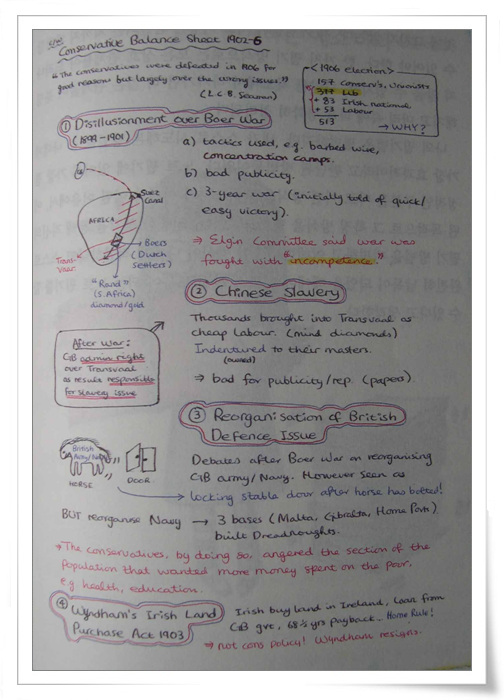 Conservative Balance Sheet 1902-6
"The conservatives were defeated in 1906 for
good reasons but largely over the wrong issues."
(L.C.B. Seaman)
<1906 election>
157 Conserv's, Unionists
377 Lib
+ 83 Irish national
+ 53 Labour
513
→ WHY?
① Disillusionment over Boer War
(1899-1901)
a) tactics used, e.g. barbed wire,
concentration camps.
b) bad publicity.
c) 3-year war (initially told of quick/
easy victory).
⇒ Elgin Committee said war was
fought with "incompetence."
Suez
Canal
AFRICA
Trans-
vaal
Boers
(Dutch
settlers)
"Rand"
(S. Africa)
diamond/gold
② Chinese Slavery
Thousands brought into Transvaal as
cheap labour. (mind diamonds)
Indentured to their masters.
(owned)
⇒ bad for publicity/rep. (papers)
After War:
GB admin right
over Transvaal
as result responsible
for slavery issue
③ Reorganisation of British
Defence Issue
Debates after Boer War on reorganising
GB army/Navy. However seen as
locking stable door after horse has bolted!
British
Army/Navy
HORSE
DOOR
BUT reorganise Navy → 3 bases (Malta, Gibralta, Home Ports)
built Dreadnoughts.
→ The conservatives, by doing so, angered the section of the
population that wanted more money spent on the poor,
e.g. health, education.
④ Wyndham's Irish Land
Purchase Act 1903
Irish buy land in Ireland, loan from
GB gvt, 68½ yrs payback - Home Rule!
⇒ not cons policy! Wyndham resigns.